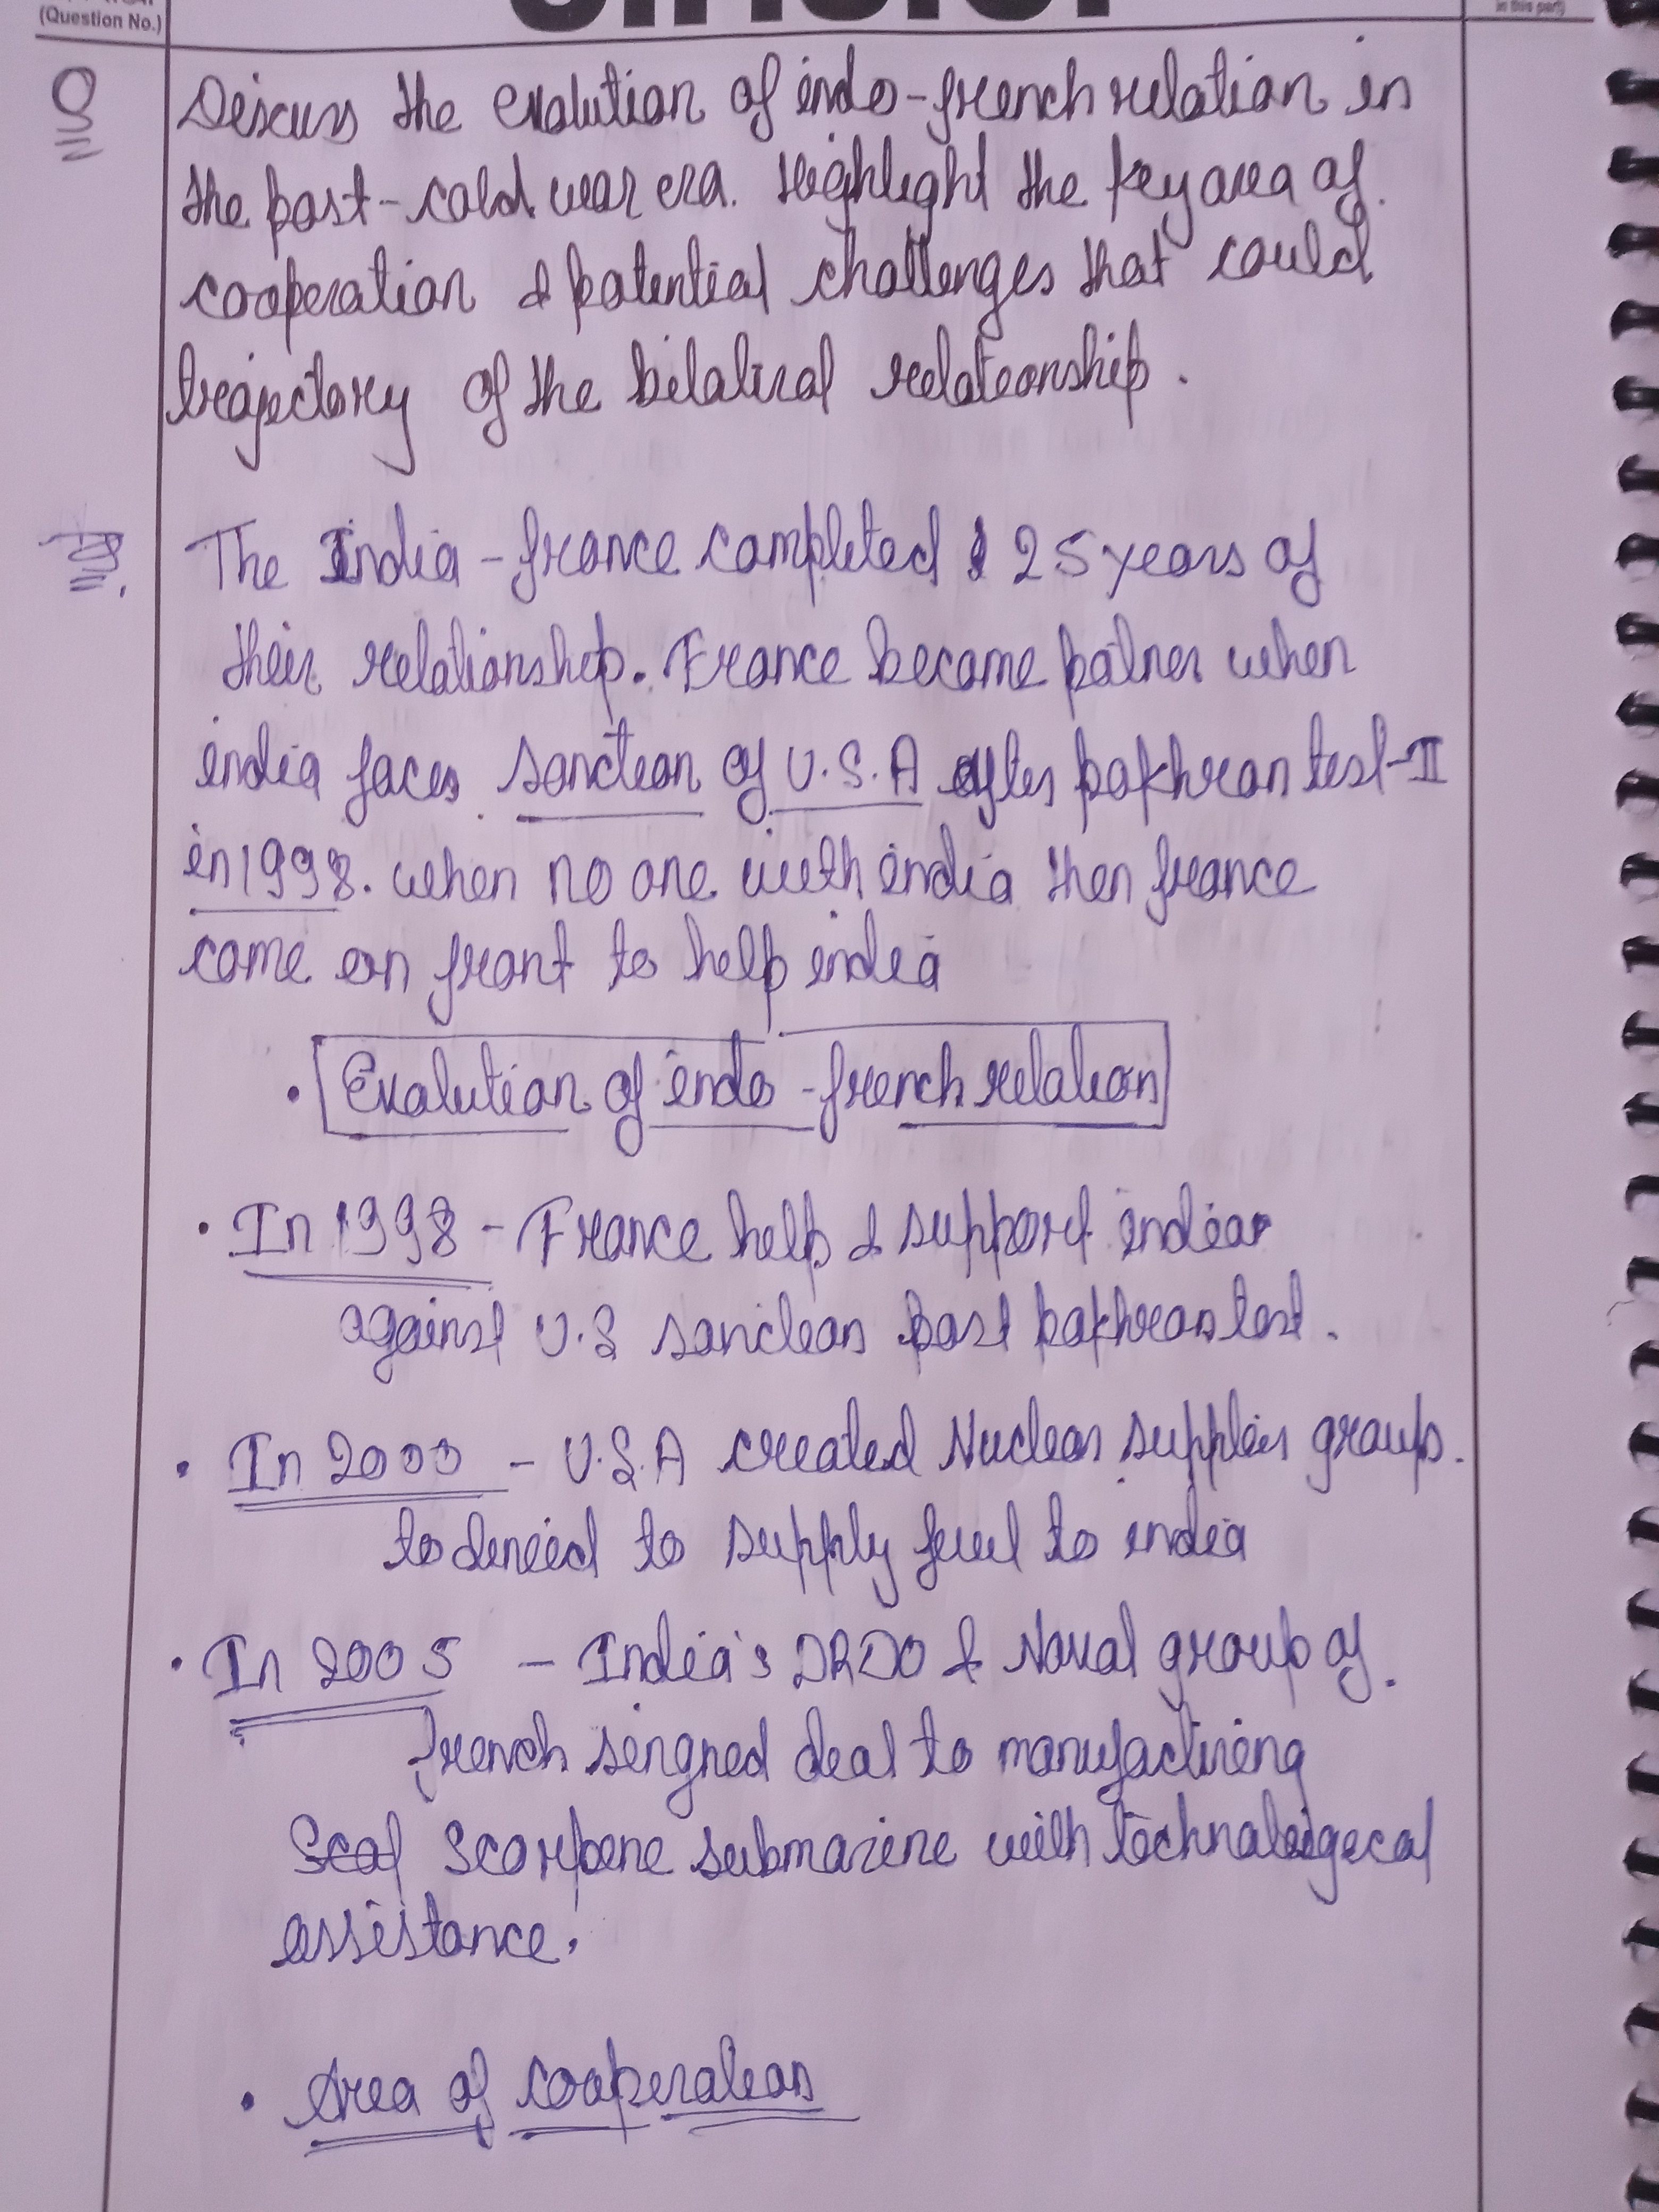 (Question No.)
in this part)
Q
Discuss the evolution of indo-french relation in
the post-cold war era. Highlight the key area of
cooperation & potential challenges that could
trajectory of the bilateral relationship.
The India-france completed 25 years of
their relationship. France become patner when
india faces sanction of U.S.A after pokhran test-II
in 1998. when no one with india then france
come on front to help india
• Evolution of indo-french relation
• In 1998 - France help & support indian
against U.S sanction post pokhran test.
• In 2000 - U.S.A created Nuclear supplier group
to denied to supply fuel to india
• In 2005 - India's DRDO & Naval group of
french singned deal to manufactiring
Scorpene submarine with technological
assistance.
• Area of cooperation